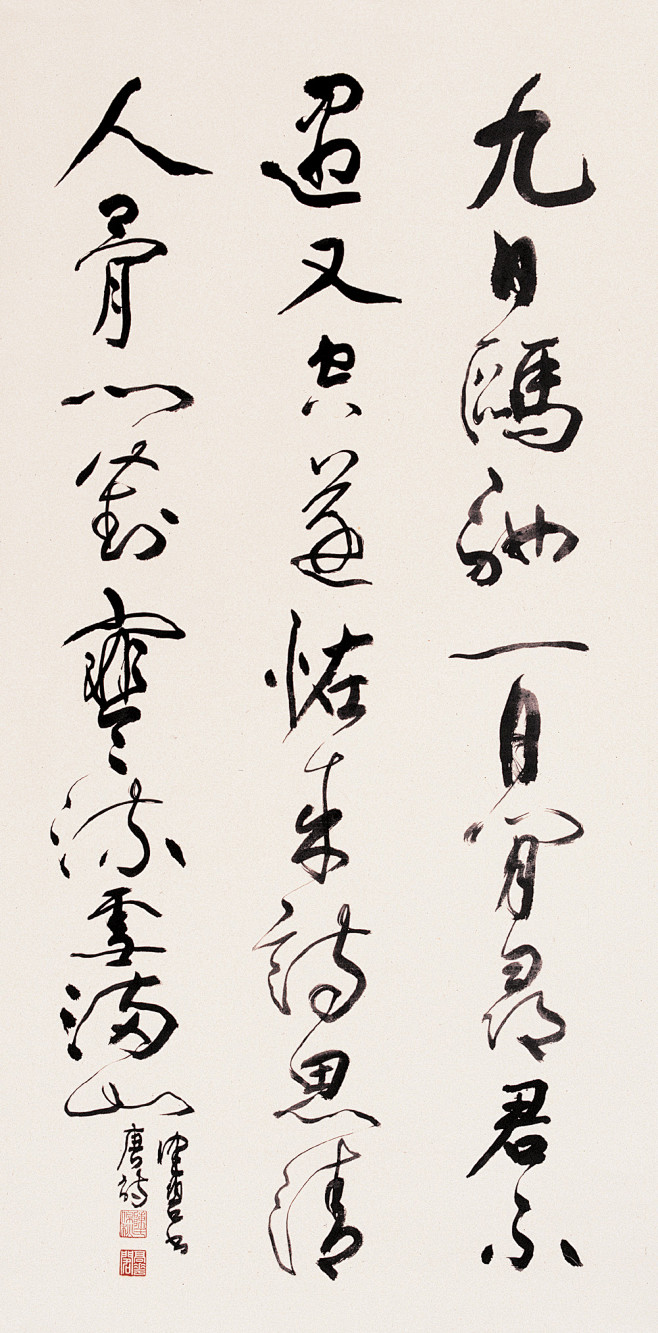 九日驅馳一日閒尋君不
遇又空還恠來詩思清
人骨門對寒流雪滿山
書
唐詩